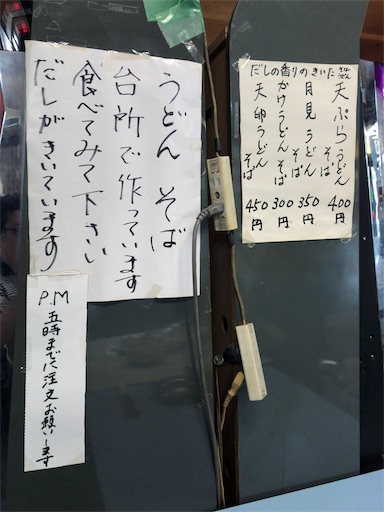 うどん そば
台所で作っています
食べてみて下さい
だしがきいています
P.M 五時までに注文お願いします
だしの香りのきいた そば うどん
天ぷらうどん そば 400円
月見うどん そば 350円
かけうどん そば 300円
天卵うどん そば 450円